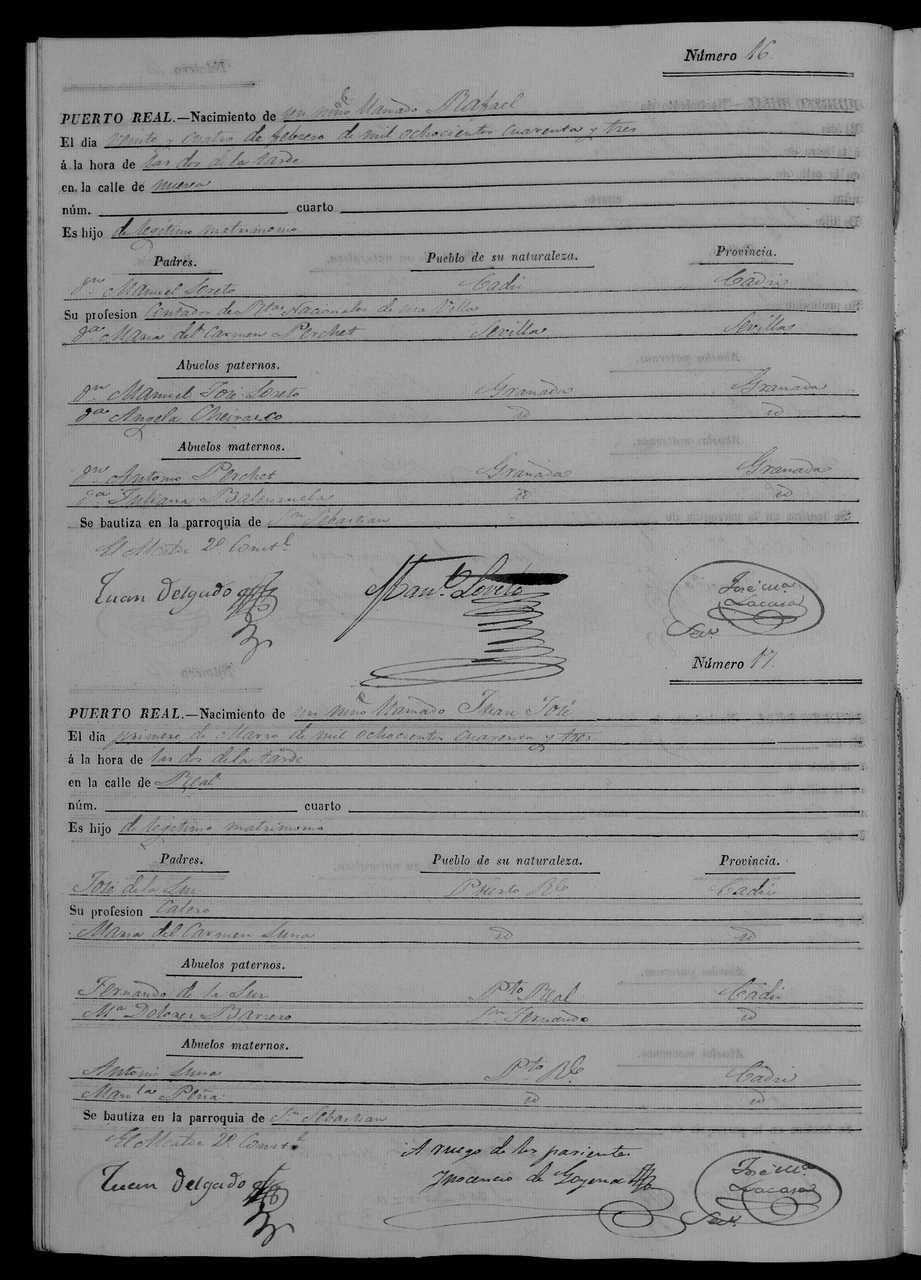 Número 16.
PUERTO REAL.—Nacimiento de un niño llamado Rafael
El dia veinte y cuatro de febrero de mil ochocientos cuarenta y tres
á la hora de las dos de la tarde
en la calle de nueva
núm. cuarto
Es hijo de legitimo matrimonio
Padres. Pueblo de su naturaleza. Provincia.
Dn Manuel Loreto Cadiz Cadiz
Su profesion Contador de Rtas Nacionales de esta Villa
Da Maria del Carmen Porchet Sevilla Sevilla
Abuelos paternos.
Dn Manuel José Loreto Granada Granada
Da Angela id id
Abuelos maternos.
Dn Antonio Porchet Granada Granada
Da Juliana Balenzuela id id
Se bautiza en la parroquia de Sn Sebastian
El Alcalde 2º Constl
Juan Delgado Manl Loreto José Ma Lacasa
Sec.
Número 17.
PUERTO REAL.—Nacimiento de un niño llamado Juan José
El dia primero de Marzo de mil ochocientos cuarenta y tres
á la hora de las dos de la tarde
en la calle de Real
núm. cuarto
Es hijo de legitimo matrimonio
Padres. Pueblo de su naturaleza. Provincia.
José de la Luz Puerto Rl Cadiz
Su profesion Calero
Maria del Carmen Luna id id
Abuelos paternos.
Fernando de la Luz Pto Real Cadiz
Ma Dolores Barrero Sn Fernando id
Abuelos maternos.
Antonio Luna Pto Rl Cadiz
Manla Peña id id
Se bautiza en la parroquia de Sn Sebastian
El Alcalde 2º Constl A ruego de los parientes
Juan Delgado Inocencio de Goyena José Ma Lacasa
Sec.